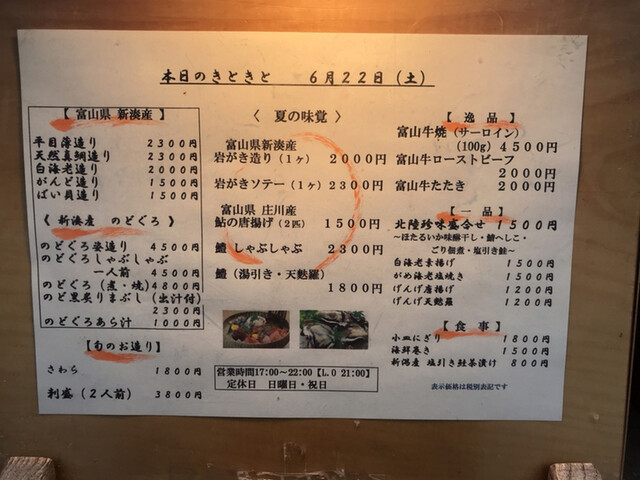 本日のきときと　6月22日（土）
【 富山県 新湊産 】
平目薄造り 2300円
天然真鯛造り 2300円
白海老造り 2000円
がんど造り 1500円
ばい貝造り 1500円
《 新湊産 のどぐろ 》
のどぐろ姿造り 4500円
のどぐろしゃぶしゃぶ
一人前 4500円
のどぐろ（煮・焼）4800円
のど黒炙りまぶし（出汁付）
2300円
のどぐろあら汁 1000円
【旬のお造り】
さわら 1800円
刺盛（2人前） 3800円
〈 夏の味覚 〉
富山県新湊産
岩がき造り（1ヶ） 2000円
岩がきソテー（1ヶ）2300円
富山県 庄川産
鮎の唐揚げ（2匹） 1500円
鱧 しゃぶしゃぶ 2300円
鱧（湯引き・天麩羅）
1800円
営業時間17:00～22:00【L.O 21:00】
定休日 日曜日・祝日
【 逸 品 】
富山牛焼（サーロイン）
(100g) 4500円
富山牛ローストビーフ
2000円
富山牛たたき 2000円
【 一 品 】
北陸珍味盛合せ 1500円
～ほたるいか味醂干し・鯖へしこ・
ごり佃煮・塩引き鮭～
白海老素揚げ 1500円
がめ海老塩焼き 1500円
げんげ唐揚げ 1200円
げんげ天麩羅 1200円
【 食 事 】
小皿にぎり 1800円
海鮮巻き 1500円
新潟産 塩引き鮭茶漬け 800円
表示価格は税別表記です